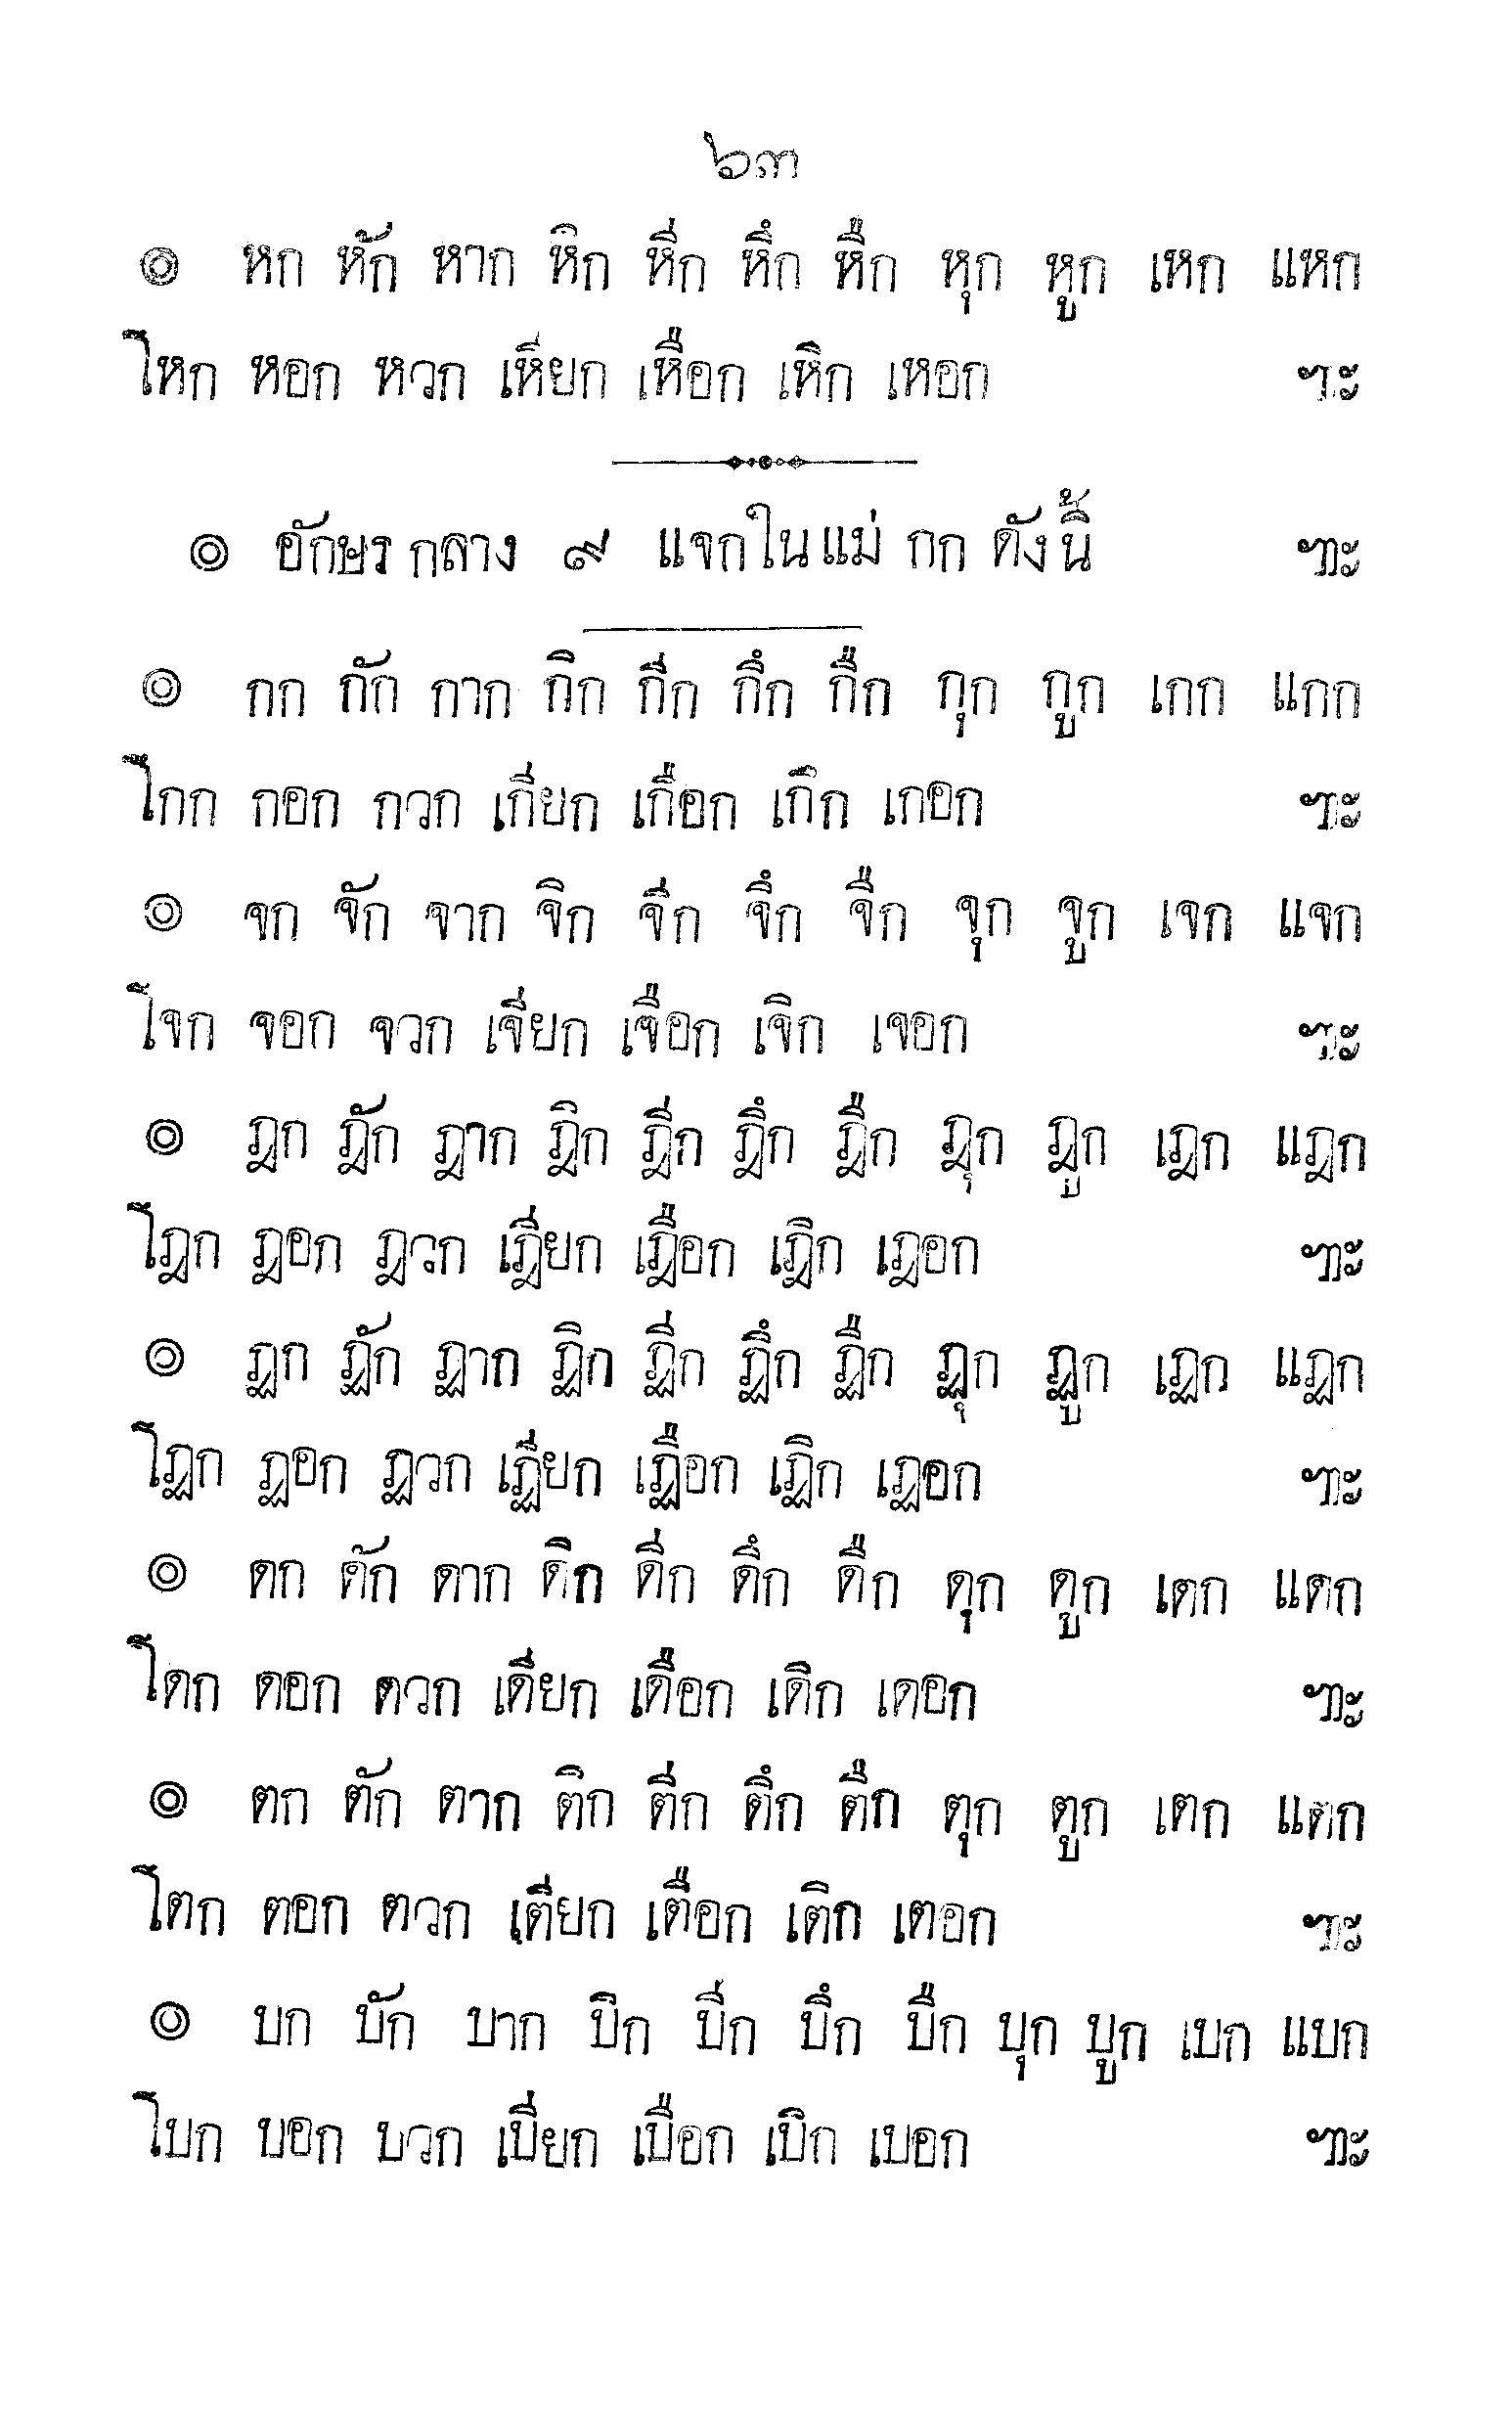 ๖๓
๏ หก หัก หาก หิก หีก หึก หืก หุก หูก เหก แหก
โหก หอก หวก เหียก เหือก เหิก เหอก ฯะ
๏ อักษร กลาง ๙ แจกในแม่ กก ดังนี้ ฯะ
๏ กก กัก กาก กิก กีก กึก กืก กุก กูก เกก แกก
โกก กอก กวก เกียก เกือก เกิก เกอก ฯะ
๏ จก จัก จาก จิก จีก จึก จืก จุก จูก เจก แจก
โจก จอก จวก เจียก เจือก เจิก เจอก ฯะ
๏ ฎก ฎัก ฎาก ฎิก ฎีก ฎึก ฎืก ฎุก ฎูก เฎก แฎก
โฎก ฎอก ฎวก เฎียก เฎือก เฎิก เฎอก ฯะ
๏ ฏก ฏัก ฏาก ฏิก ฏีก ฏึก ฏืก ฏุก ฏูก เฏก แฏก
โฏก ฏอก ฏวก เฏียก เฏือก เฏิก เฏอก ฯะ
๏ ดก ดัก ดาก ดิก ดีก ดึก ดืก ดุก ดูก เดก แดก
โดก ดอก ดวก เดียก เดือก เดิก เดอก ฯะ
๏ ตก ตัก ตาก ติก ตีก ตึก ตืก ตุก ตูก เตก แตก
โตก ตอก ตวก เตียก เตือก เติก เตอก ฯะ
๏ บก บัก บาก บิก บีก บึก บืก บุก บูก เบก แบก
โบก บอก บวก เบียก เบือก เบิก เบอก ฯะ